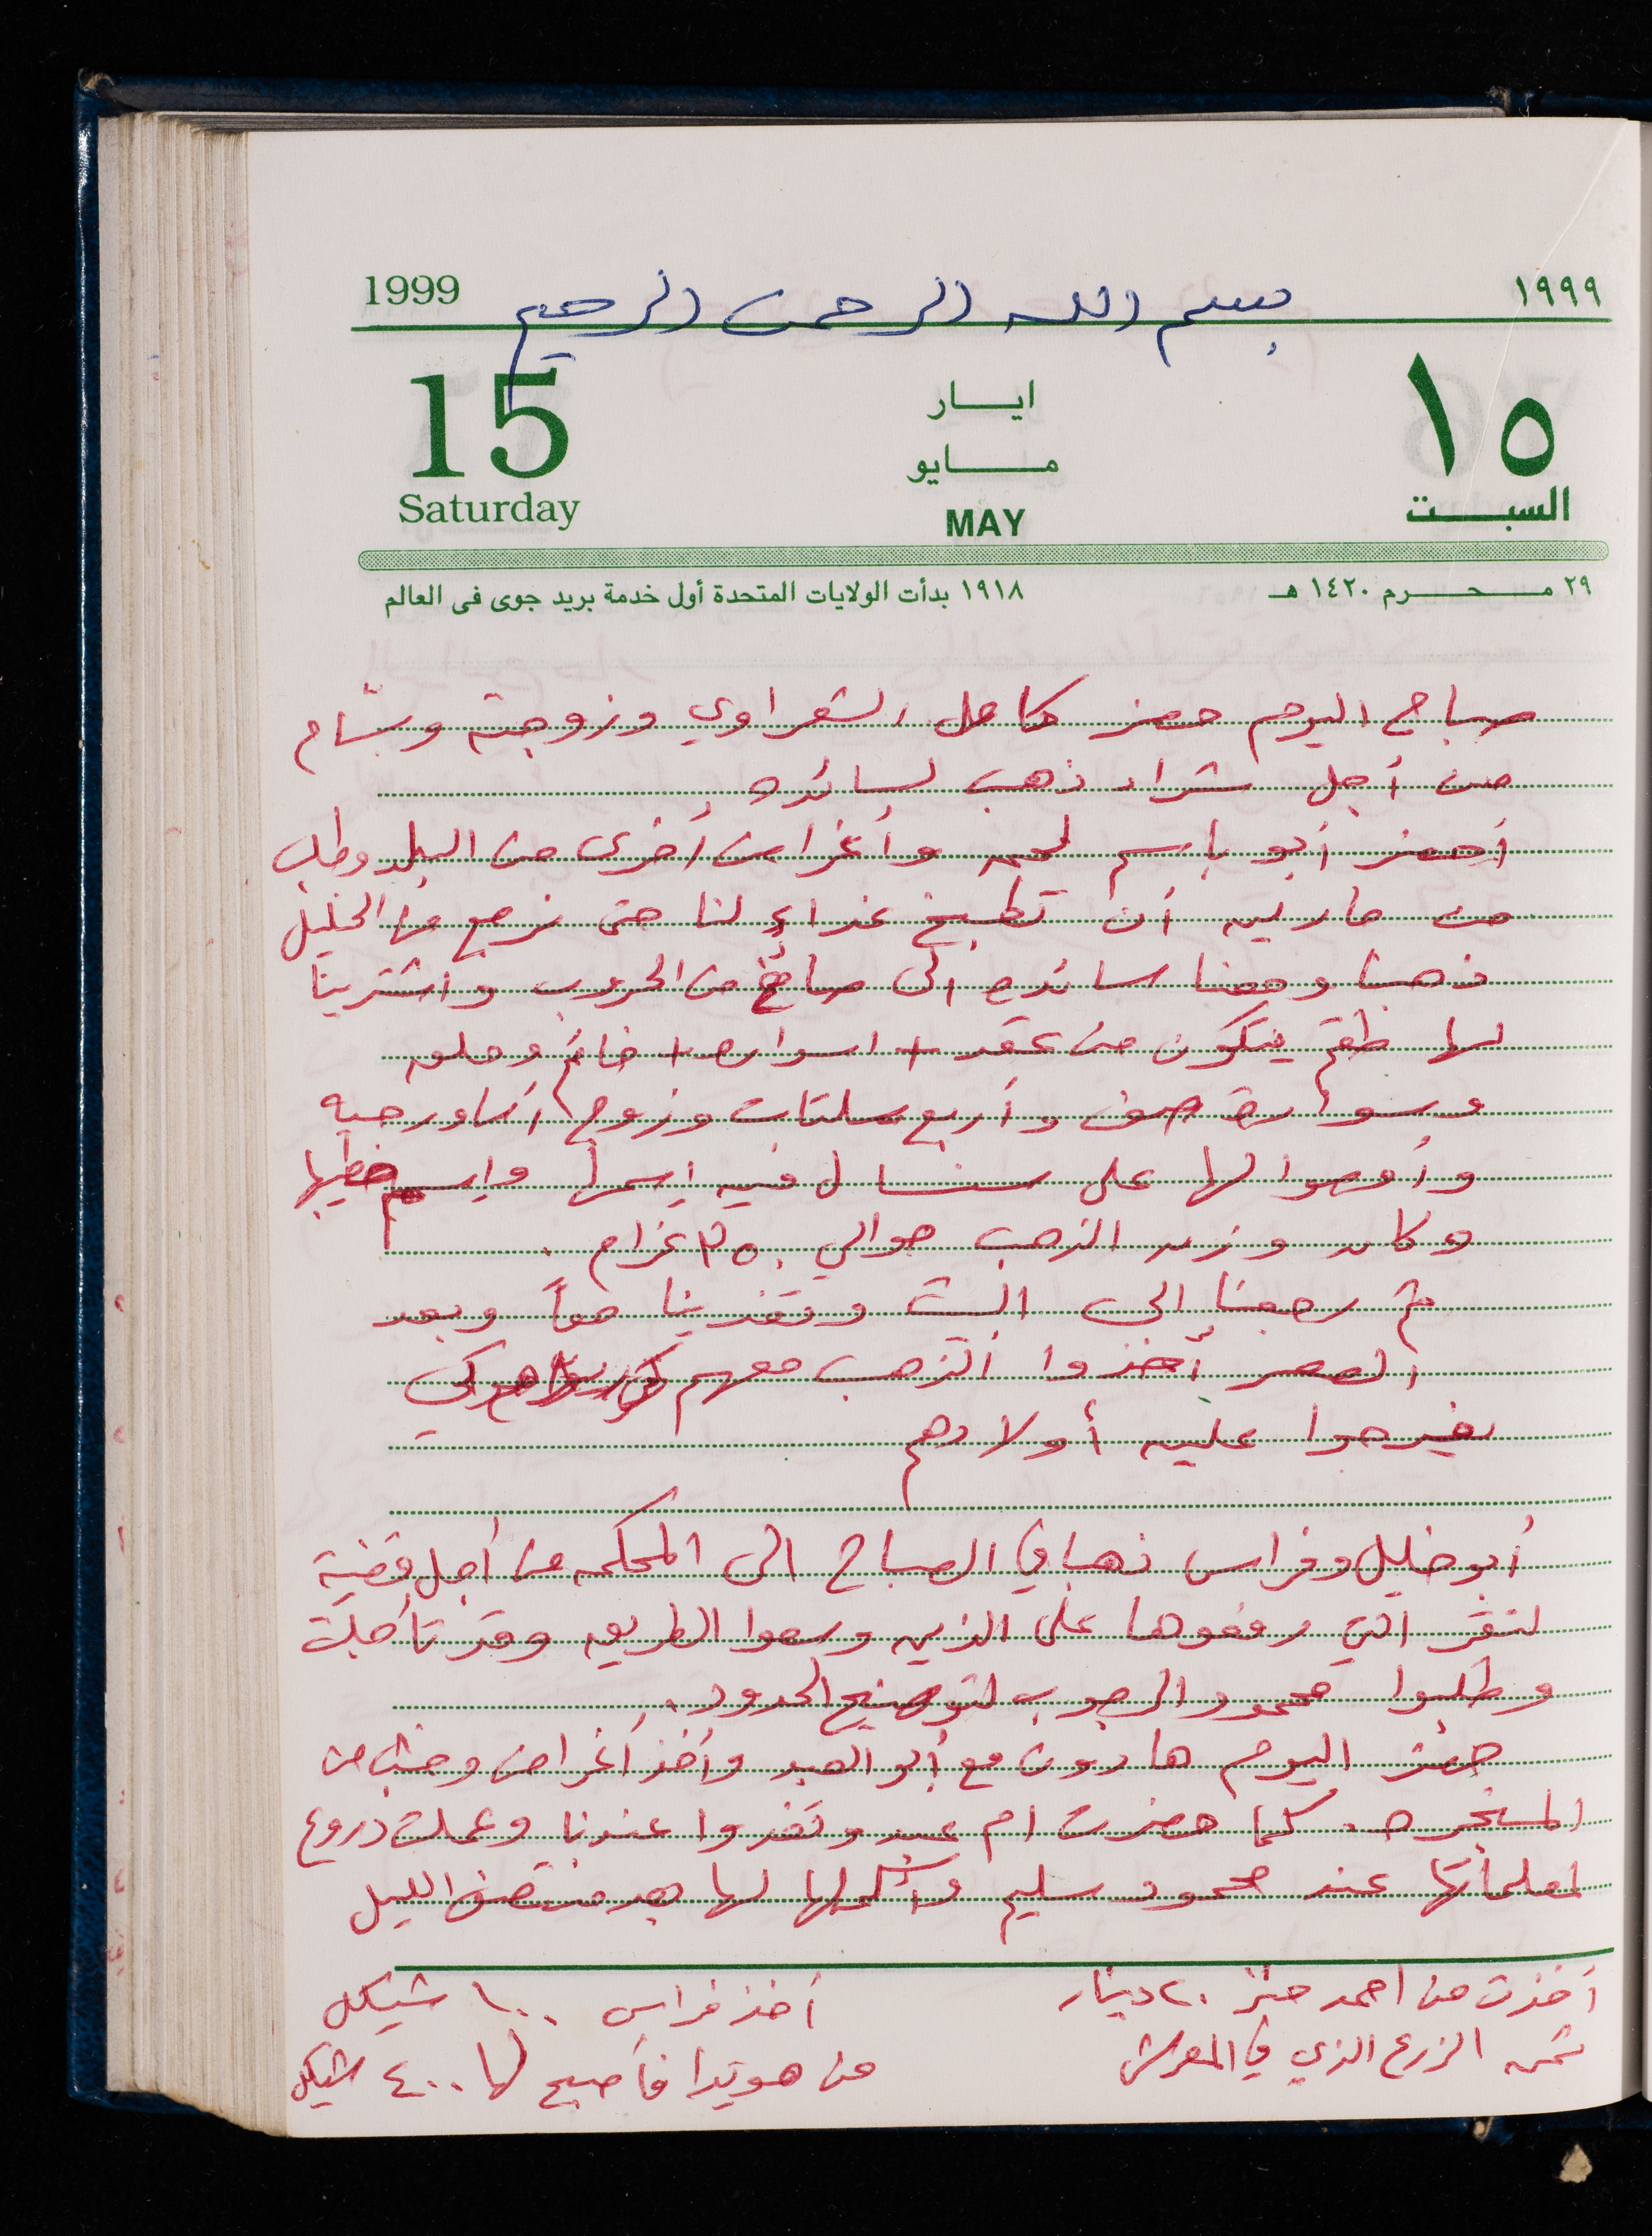 1999 بسم الله الرحمن الرحيم ١٩٩٩
15 ايار ١٥
مايو
Saturday MAY السبت
٢٩ محرم ١٤٢٠ هـ ١٩١٨ بدأت الولايات المتحدة أول خدمة بريد جوى فى العالم
صباح اليوم حضر كامل الشعراوي وزوجته وبسّام
من أجل شراء ذهب لسائده
أحضر أبو باسم لحمه وأغراض أخرى من البلد وطلب
من مارلين أن تطبخ غداء لنا حتى نرجع من الخليل
ذهبنا ومعنا سائده الى صائغ من الحروب واشترينا
لها طقم يتكون من عقد + اسواره + خاتم وحلق
وسواره صف وأربع سلتات وزوج أساور حيه
وأوصوا لها على سنسال فيه اسمها واسم خطيبها
وكان وزن الذهب حوالي ٢٥٠ غرام .
ثم رجعنا إلى البيت وتغدينا معاً وبعد
العصر أخذوا الذهب معهم كي
يفرحوا عليه أولادهم
أبو خليل وفراس ذهبا في الصباح الى المحكمه من أجل قضية
لتقر التي رفعوها على الذين وسعوا الطريق وقد تأجلت
وطلبوا محمود الرجوب لتوضيح الحدود .
حضر اليوم هارون مع أبو العبد وأخذ أغراض وخشب من
المنجره . كما حضرت ام عبد وتغدوا عندنا وعملت دروع
لمعلماتها عند محمود سليم وأكملها لها بعد منتصف الليل
أخذت من احمد ٢٠ دينار
ثمن الزرع الذي في المعرش
أخذ فراس ١٠٠ شيكل
من هويدا فأصبح لها ٤٠٠ شيكل